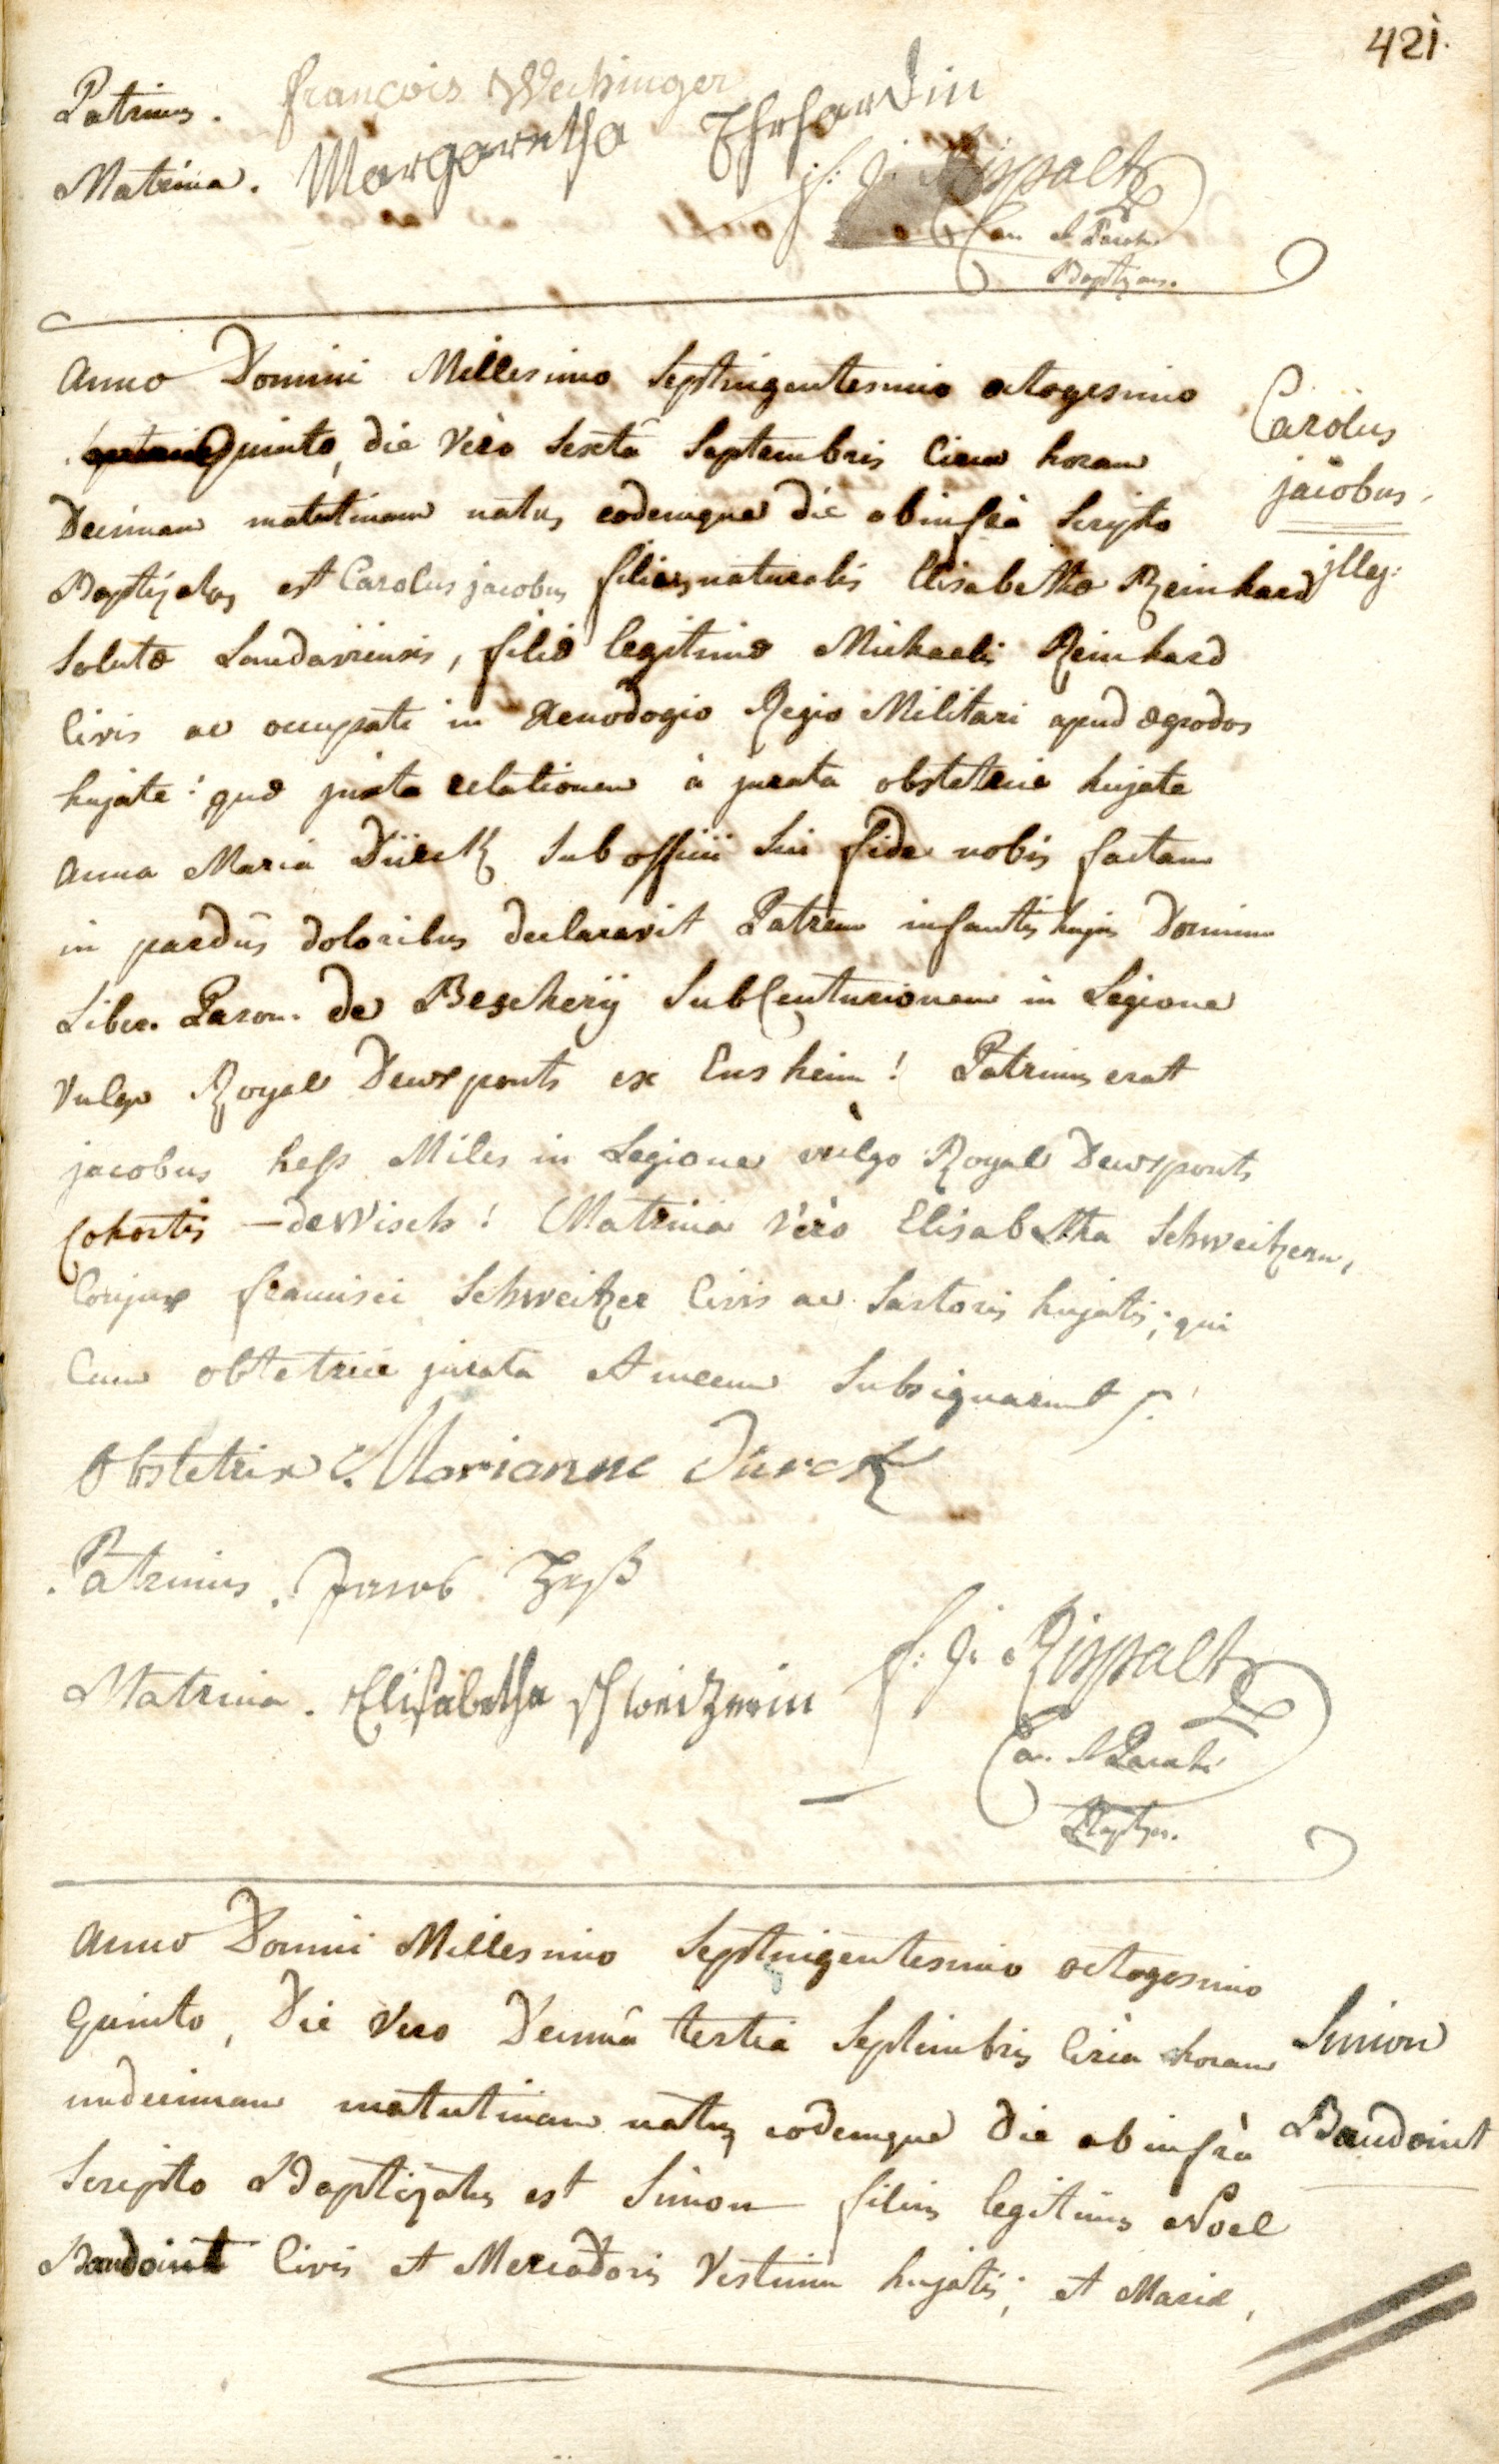 421.
Patrinus. françois Wechinger
Matrina. Margaretha Ehrhardin
f: J: Rispalt
Can. et Paroch.
Baptizans.
Anno Domini Millesimo Septingentesimo octogesimo
Quinto, die Verò Sextâ Septembris Circa horam
Decimam matutinam natus eodemque die ab infrà Scripto
Baptizatus est Carolus jacobus filius naturalis Elisabethæ Reinhard
Solutæ Landaviensis, filiæ legitimæ Michaelis Reinhard
Civis ac occupati in Xenodogio Regio Militari apud ægrotos
hujate! quæ juxta relationem à jurata obstetrice hujate
Anna Maria Dürck Sub officii Sui fide nobis factam
in partûs doloribus declaravit Patrem infantis hujus Dominum
Liber. Baron. de Beschery SubCenturionem in Legione
Vulgo Royal Deuxponts ex Ensheim! Patrinus erat
jacobus heß Miles in Legione vulgo Royal Deuxponts
Cohortis - de Wisch! Matrina Verò Elisabetha Schweitzerin,
Conjux francisci Schweitzer Civis ac Sartoris hujatis; qui
Cum obstetrice jurata et mecum Subsignarunt
Carolus
jacobus.
illeg:
Obstetrix Marianne Dürck
Patrinus. Jacob Heß
Matrina. Elisabetha schweizerin
f: J: Rispalt
Can. et Paroch.
Baptizs.
Anno Domini Millesimo Septingentesimo octogesimo
Quinto, Die Vero Decimâ tertia Septembris Circa horam
undecimam matutinam natus eodemque Die ab infrà
Scripto Baptizatus est Simon filius legitimus Noel
Baudoint Civis et Mercatoris Vestium hujatis; et Mariæ,
Simon
Baudoint